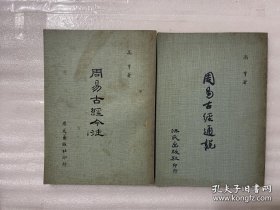 高亨著
周易古經今注
樂天出版社印行
高亨著
周易古經通說
洪氏出版社印行
孔夫子旧书网